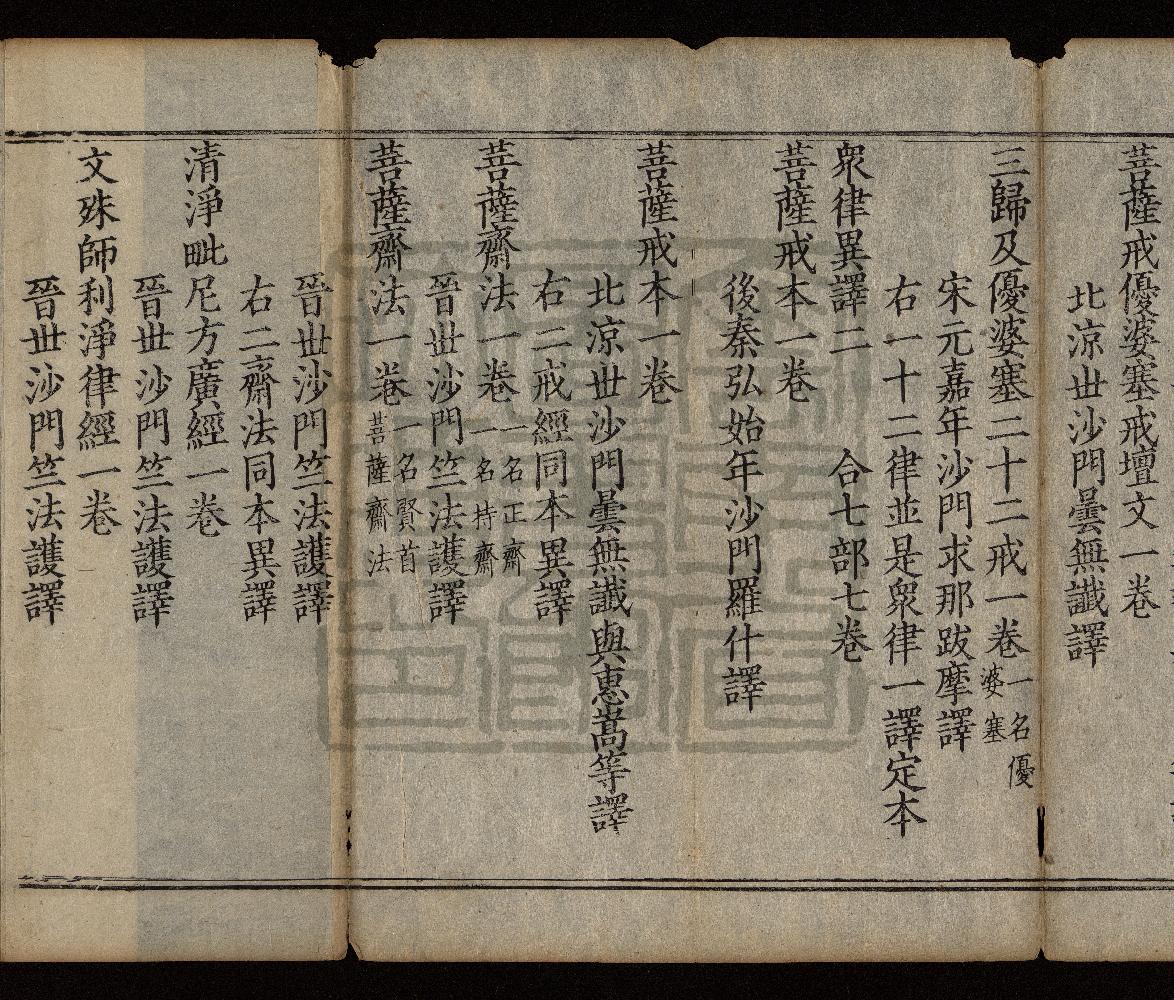 菩薩戒優婆塞戒壇文一卷
北涼丗沙門曇無讖譯
三歸及優婆塞二十二戒一卷一名優婆塞
宋元嘉年沙門求那跋摩譯
右一十二律並是衆律一譯定本
衆律異譯二　合七部七卷
菩薩戒本一卷
後秦弘始年沙門羅什譯
菩薩戒本一卷
北涼丗沙門曇無讖與惠嵩等譯
右二戒經同本異譯
菩薩齋法一卷一名正齋一名持齋
晉丗沙門竺法護譯
菩薩齋法一卷一名賢首菩薩齋法
晉丗沙門竺法護譯
右二齋法同本異譯
清淨毗尼方廣經一卷
晉丗沙門竺法護譯
文殊師利淨律經一卷
晉丗沙門竺法護譯